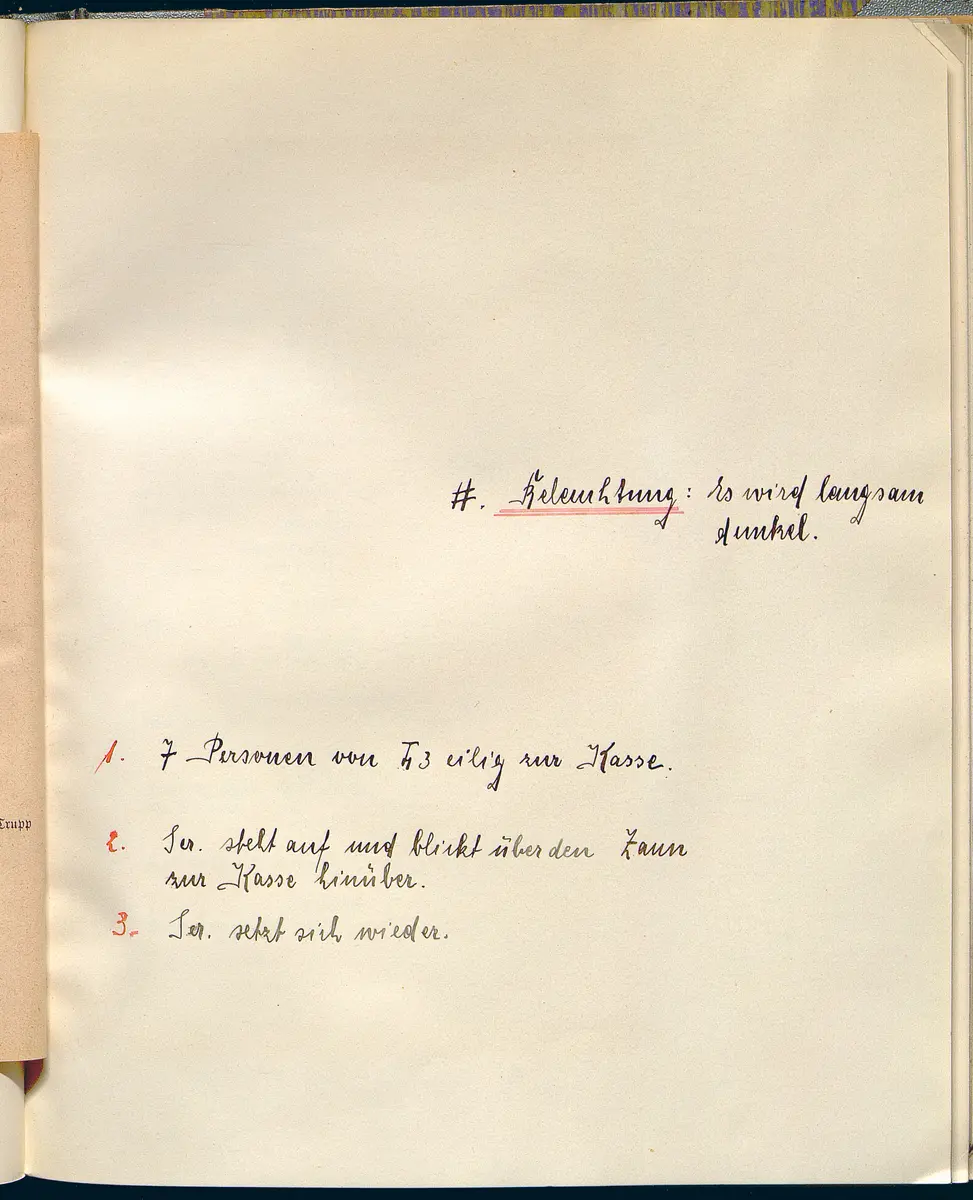 #. Beleuchtung: Es wird langsam
dunkel.
1. 7 Personen von h3 eilig zur Kasse.
Trupp
2. Ser. steht auf und blickt über den Zaun
zur Kasse hinüber.
3. Ser. setzt sich wieder.